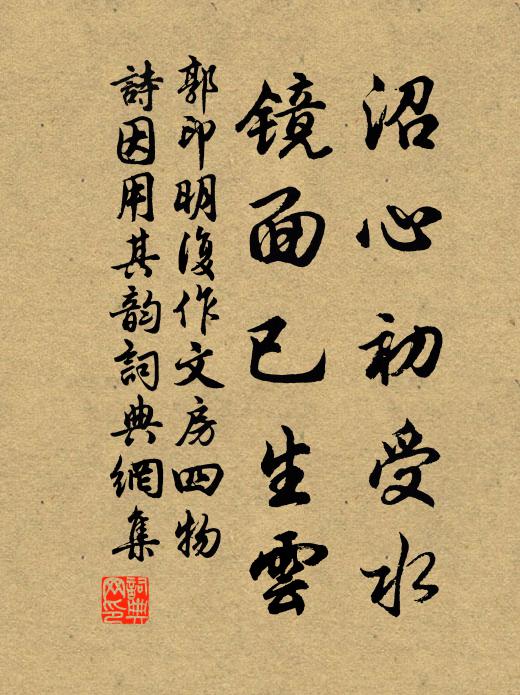 沼心初受水
鏡面已生雲
郭印明復作文房四物
詩因用其韵詞典網集
詞典网印